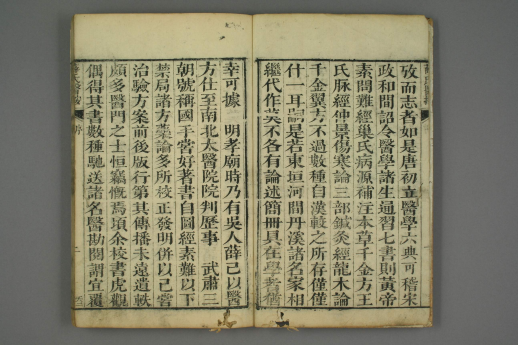 攷而志者如是唐初立醫學六典可稽宋
政和間詔令醫學諸生通習七書則黃帝
素問難經巢氏病源補注本草千金方王
氏脉經仲景傷寒論三部鍼灸經龍木論
千金翼方不過數種自漢較之所存僅僅
什一耳嗣是若東垣河間丹溪諸名家相
繼代作莫不各有論述簡冊具在學者猶
幸可據　明孝廟時乃有吳人薛己以醫
方仕至南北太醫院院判歷事　武肅三
朝號稱國手嘗好著書自圖經素難以下
禁局諸方藁論多所校正發明併以己嘗
治驗方案前後版行第其傳播未遠遺軼
頗多醫門之士恒竊慨焉頃余校書虎觀
偶得其書數種馳送諸名醫勘閱謂宜覆